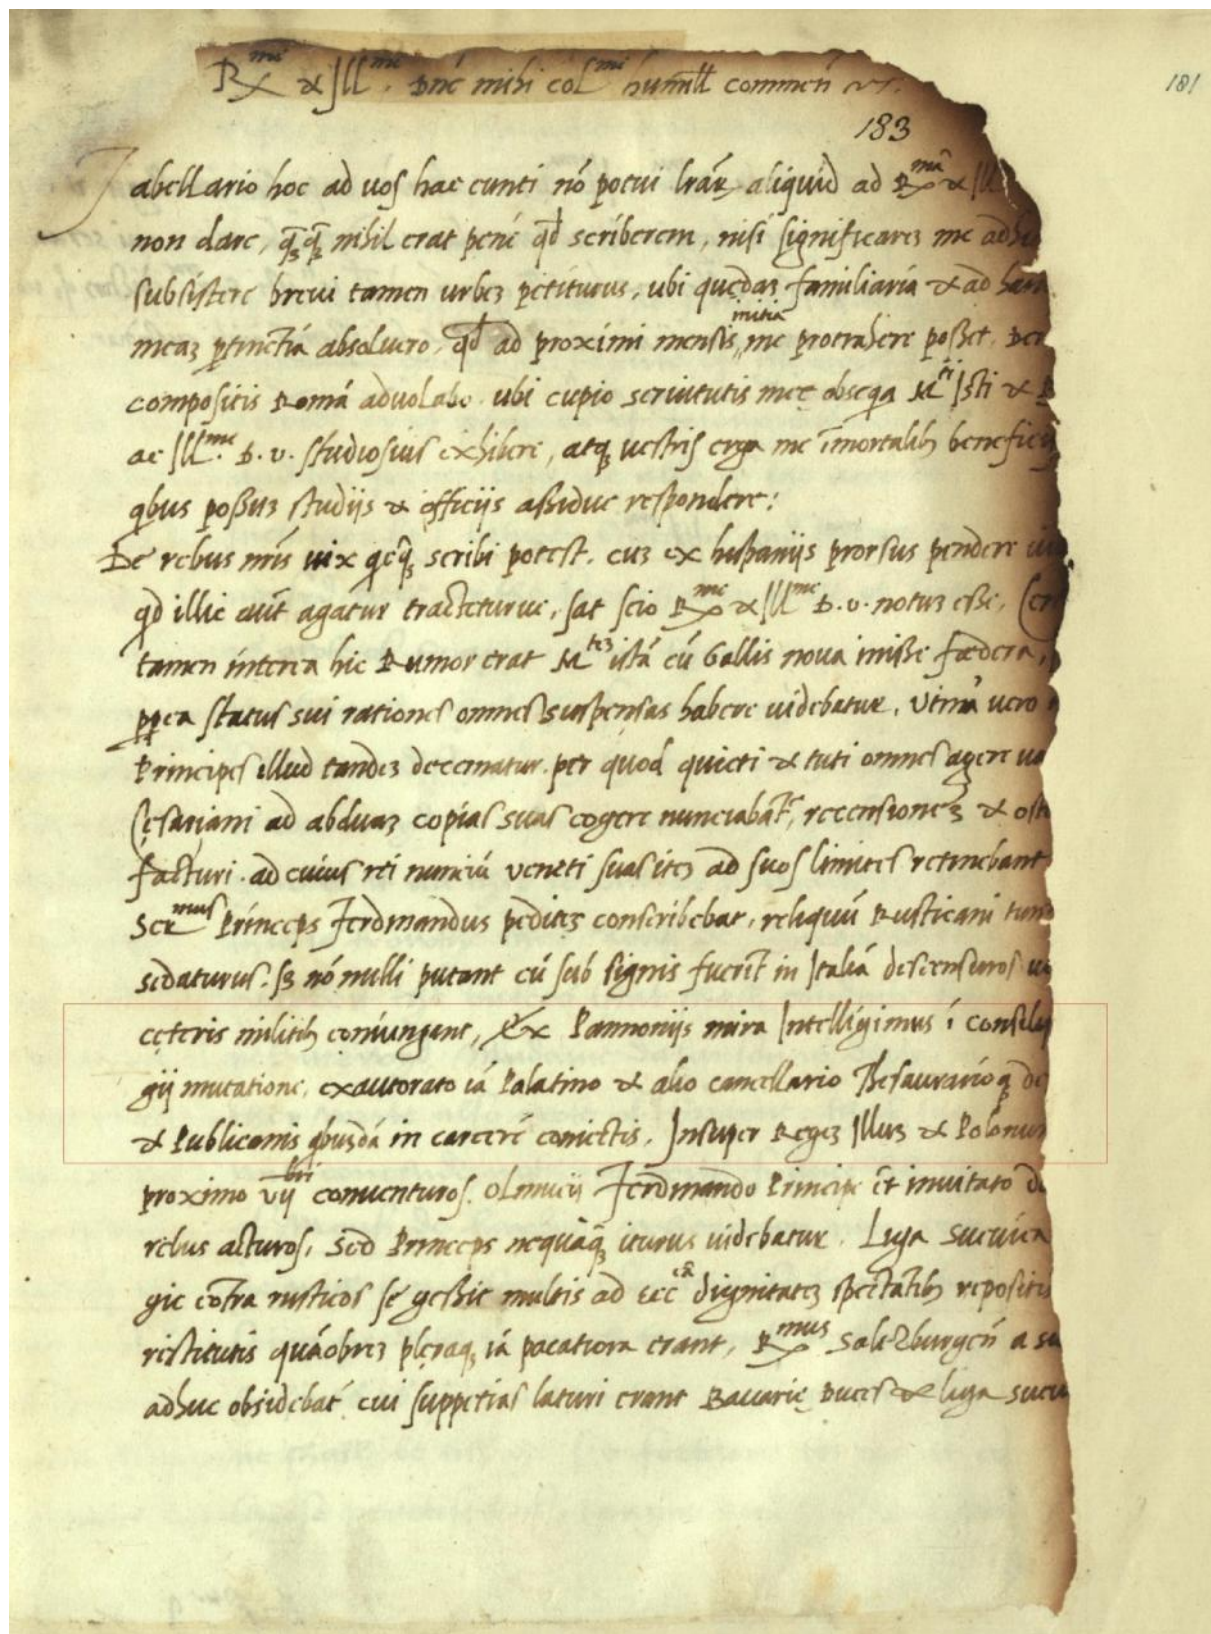 R.me et Ill.me Dne mihi col.me humill commen
181
183
Tabellario hoc ad vos hac eunti nō potui lrāꝝ aliquid ad R.mā et Ill
non dare, q̄ꝫq̄ꝫ nihil erat penè qđ scriberem, nisi significareꝫ me adhu
subsistere brevi tamen urbeꝫ petiturus, ubi quędaꝫ familiaria et ad
meaꝫ ptinētiā absolvero, qđ ad proximi mensis initiā me protrahere posset.
compositis Romā advolabo. ubi cupio servitutis meę obseqa M.ti Isti et
ac Ill.me D. v. studiosius exhibere, atqꝫ vestris erga me īmortalibꝫ benefic
qbus possuꝫ studijs et officijs assidue respondere:
De rebus nris vix qcq̄ꝫ scribi potest. cuꝫ ex hispanijs prorsus pendere
qđ illic aut agātur tracteturve, sat scio R.me et Ill.me D. v. notuꝫ esse,
tamen interea hic Rumor erat M.teꝫ istā cū Gallis nova inisse fœdera,
ppea status sui rationes omnes suspensas habere videbatur. Utinā vero
Principes illud tandeꝫ decernatur per quod quieti et tuti omnes agere
Cęsariani ad abduaꝫ copias suas cogere nunciabāt, recensioneꝫ et
facturi. ad cuius rei nunciū veneti suas iteꝫ ad suos limites retinebant
Ser.mus Princeps Ferdinandus pediteꝫ conscribebat, reliquū Rusticani
sedaturus. sꝫ nō nulli putant cū sub signis fuerīt in Italiā descensuros
cęteris militibꝫ coniungant, Ex Pannonijs mira Intelligimus ī
gij mutatione, exautorato iā Palatino et alio cancellario Thesaurarioqꝫ
et Publicanis qbusdā in carcerē coniectis. Insuper Regeꝫ Illuꝫ et Polonu
proximo vij.bri conventuros. Olmucij Ferdinando Principe ēt invitato
rebus acturos, Sed Princeps nequāq̄ꝫ iturus videbatur. Liga
gie cōtra rusticos se gessit multis ad ecc.cā dignitateꝫ spectātibꝫ repositis
restitutis quāobreꝫ plęraqꝫ iā pacatiora erant, R.mus Saltzburgeñ a
adhuc obsidebāt cui suppetias laturi erant Bavarię Duces et liga